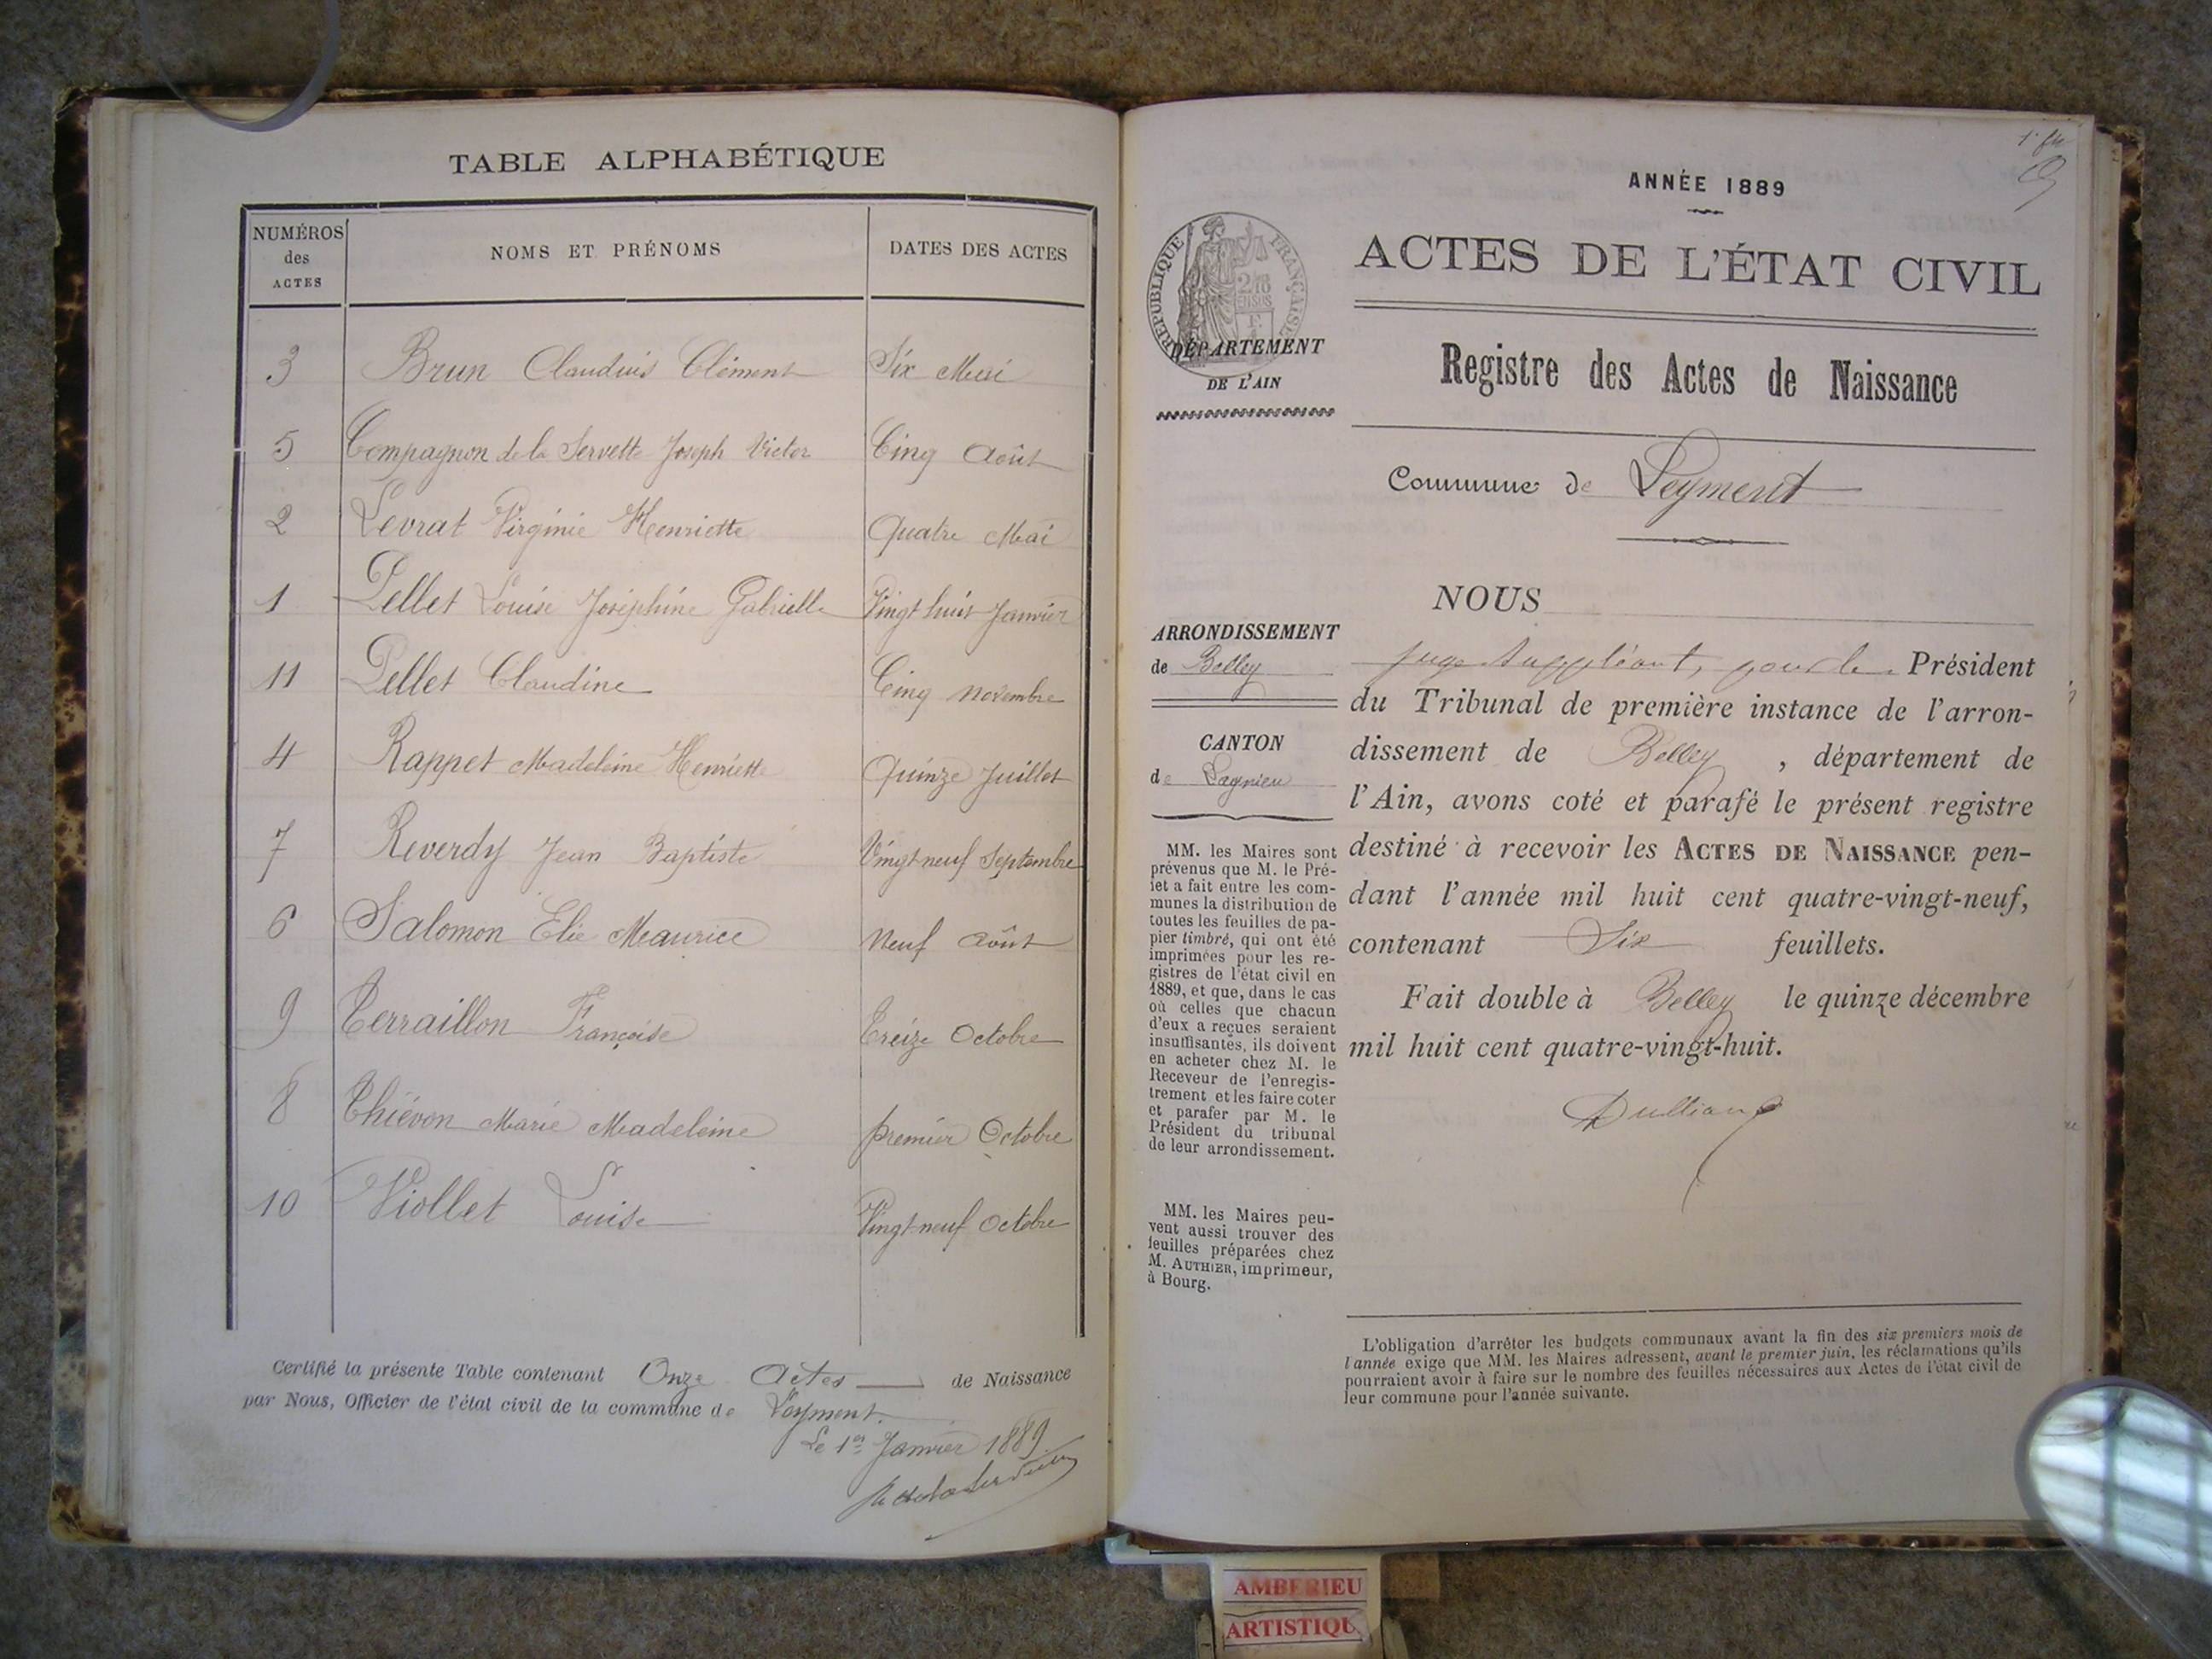 TABLE ALPHABÉTIQUE
NUMÉROS des ACTES NOMS ET PRÉNOMS DATES DES ACTES
3 Brun Claudius Clément Six Mai
5 Compagnon de la Servette Joseph Victor Cinq Août
2 Levrat Virginie Henriette Quatre Mai
1 Pellet Louise Joséphine Gabrielle Vingt huit Janvier
11 Pellet Claudine Cinq Novembre
4 Rappet Madeleine Henriette Quinze Juillet
7 Reverdy Jean Baptiste Vingt neuf Septembre
6 Salomon Elie Maurice Neuf Août
9 Terraillon Françoise Treize Octobre
8 Thiévon Marie Madeleine premier Octobre
10 Viollet Louise Vingt neuf Octobre
Certifié la présente Table contenant Onze Actes de Naissance
par Nous, Officier de l'état civil de la commune de Leyment.
Le 1er Janvier 1889
ANNÉE 1889
RÉPUBLIQUE FRANÇAISE
ACTES DE L'ÉTAT CIVIL
DÉPARTEMENT
DE L'AIN
Registre des Actes de Naissance
Commune de Leyment
ARRONDISSEMENT
de Belley
CANTON
de Lagnieu
MM. les Maires sont
prévenus que M. le Pré-
fet a fait entre les com-
munes la distribution de
toutes les feuilles de pa-
pier timbré, qui ont été
imprimées pour les re-
gistres de l'état civil en
1889, et que, dans le cas
où celles que chacun
d'eux a reçues seraient
insuffisantes, ils doivent
en acheter chez M. le
Receveur de l'enregis-
trement et les faire coter
et parafer par M. le
Président du tribunal
de leur arrondissement.
MM. les Maires peu-
vent aussi trouver des
feuilles préparées chez
M. AUTHIER, imprimeur,
à Bourg.
NOUS
juge suppléant, pour le Président
du Tribunal de première instance de l'arron-
dissement de Belley, département de
l'Ain, avons coté et parafé le présent registre
destiné à recevoir les ACTES DE NAISSANCE pen-
dant l'année mil huit cent quatre-vingt-neuf,
contenant Six feuillets.
Fait double à Belley le quinze décembre
mil huit cent quatre-vingt-huit.
L'obligation d'arrêter les budgets communaux avant la fin des six premiers mois de
l'année exige que MM. les Maires adressent, avant le premier juin, les réclamations qu'ils
pourraient avoir à faire sur le nombre des feuilles nécessaires aux Actes de l'état civil de
leur commune pour l'année suivante.
AMBERIEU
ARTISTIQU